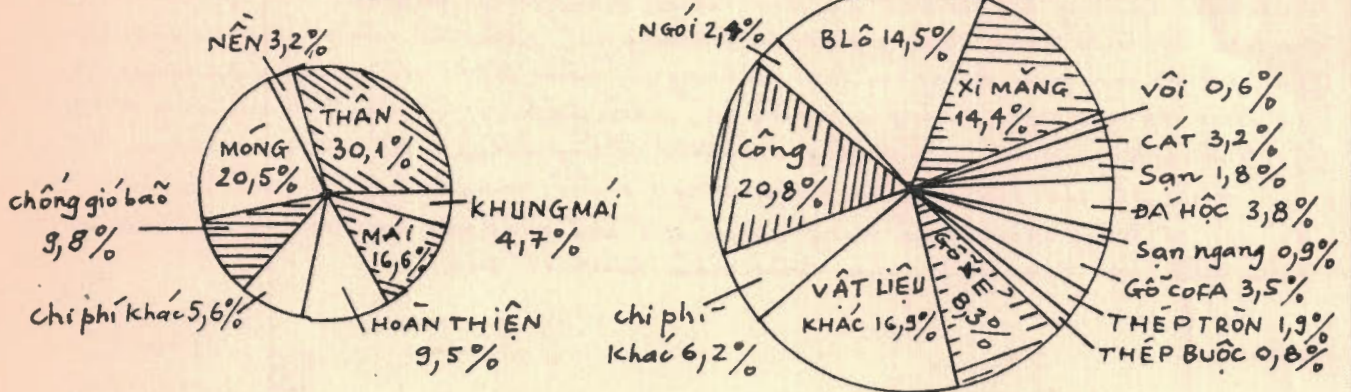 NỀN 3,2%
THÂN
30,1%
MÓNG
20,5%
chống gió bão
9,8%
KHUNG MÁI
4,7%
MÁI
16,6%
chi phí khác 5,6%
HOÀN THIỆN
9,5%
NGÓI 2,4%
BLÔ 14,5%
XI MĂNG
14,4%
VÔI 0,6%
CÁT 3,2%
Sạn 1,8%
ĐÁ HỘC 3,8%
Sạn ngang 0,9%
GỖ COFA 3,5%
THÉP TRÒN 1,9%
THÉP BUỘC 0,8%
GỖ XẺ
8,30%
VẬT LIỆU
KHÁC 16,9%
chi phí
khác 6,2%
Công
20,8%